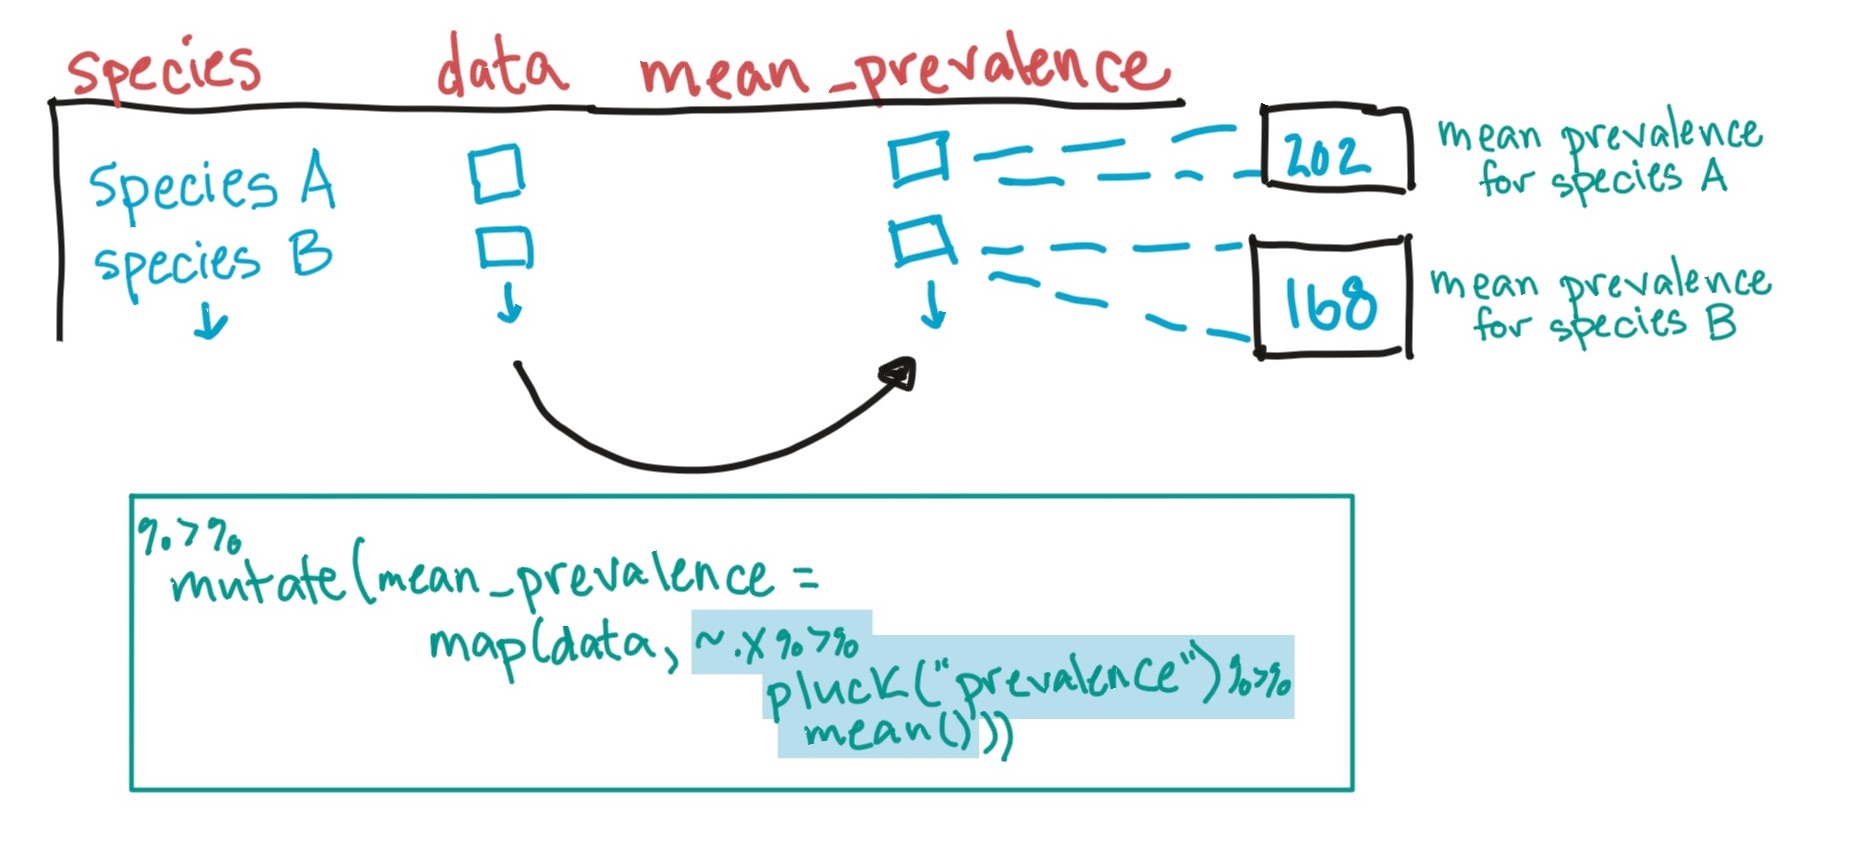 species data mean_prevalence
Species A
202
mean prevalence
for species A
species B
168
mean prevalence
for species B
%>%
mutate(mean_prevalence =
map(data, ~.x %>%
pluck("prevalence") %>%
mean()))